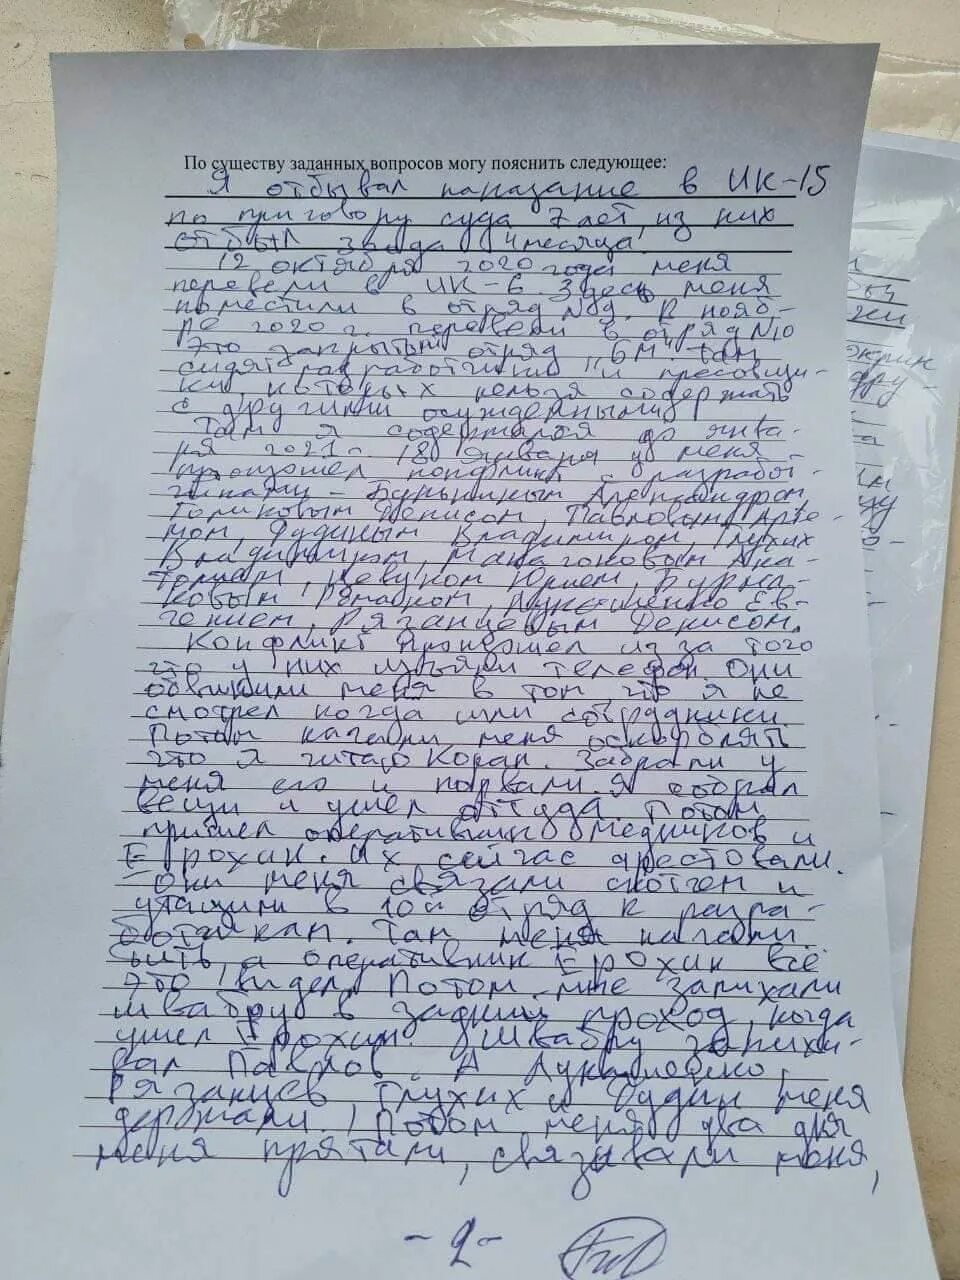 По существу заданных вопросов могу пояснить следующее:
Я отбывал наказание в ИК-15
по приговору суда 7 лет, из них
отбыл 3 года 4 месяца
12 октября 2020 года меня
перевели в ИК-6. Здесь меня
поместили в отряд №9. В нояб-
ре 2020 г. перевели в отряд №10
Это закрытый отряд "БМ" там
сидят разработчики и прессовщи-
ки, которых нельзя содержать
с другими осужденными.
Там я содержался до янва-
ря 2021 г. 18 января у меня
произошел конфликт с разработ-
чиками - Александром,
Толиковым Денисом, Павловым Арте-
мом, Дудиным Владимиром, Глухих
Владимиром, Ана-
толием, Юрием, Бурма-
ковым Романом, Лукашенко Ев-
гением, Рязанцевым Денисом.
Конфликт произошел из за того
что у них изъяли телефон. Они
обвинили меня в том что я не
смотрел когда шли сотрудники.
Потом начали меня оскорблять
что я читаю Коран. Забрали у
меня его и порвали. Я собрал
вещи и ушел оттуда. Потом
пришел оперативник Медников и
Ерохин. Их сейчас арестовали.
Они меня связали скотчем и
утащили в 10й отряд к разра-
боткам. Там меня начали
бить, а оперативник Ерохин всё
это видел. Потом мне запихали
швабру в задний проход, когда
ушел Ерохин. Швабру запихи-
вал Павлов. А Лукашенко,
Рязанцев, Глухих и Дудин меня
держали. Потом меня два дня
меня прятали, связывали меня,
- 2 -